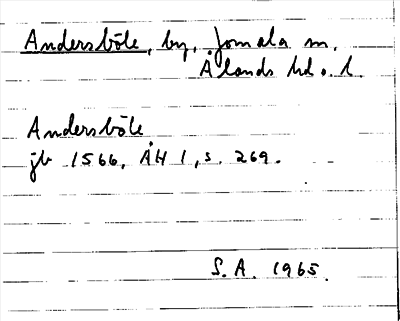 Andersböle, by, Jomala m,
Ålands hd o. l.
Andersböle
jb 1566, ÅH 1, s. 269.
S.A. 1965.